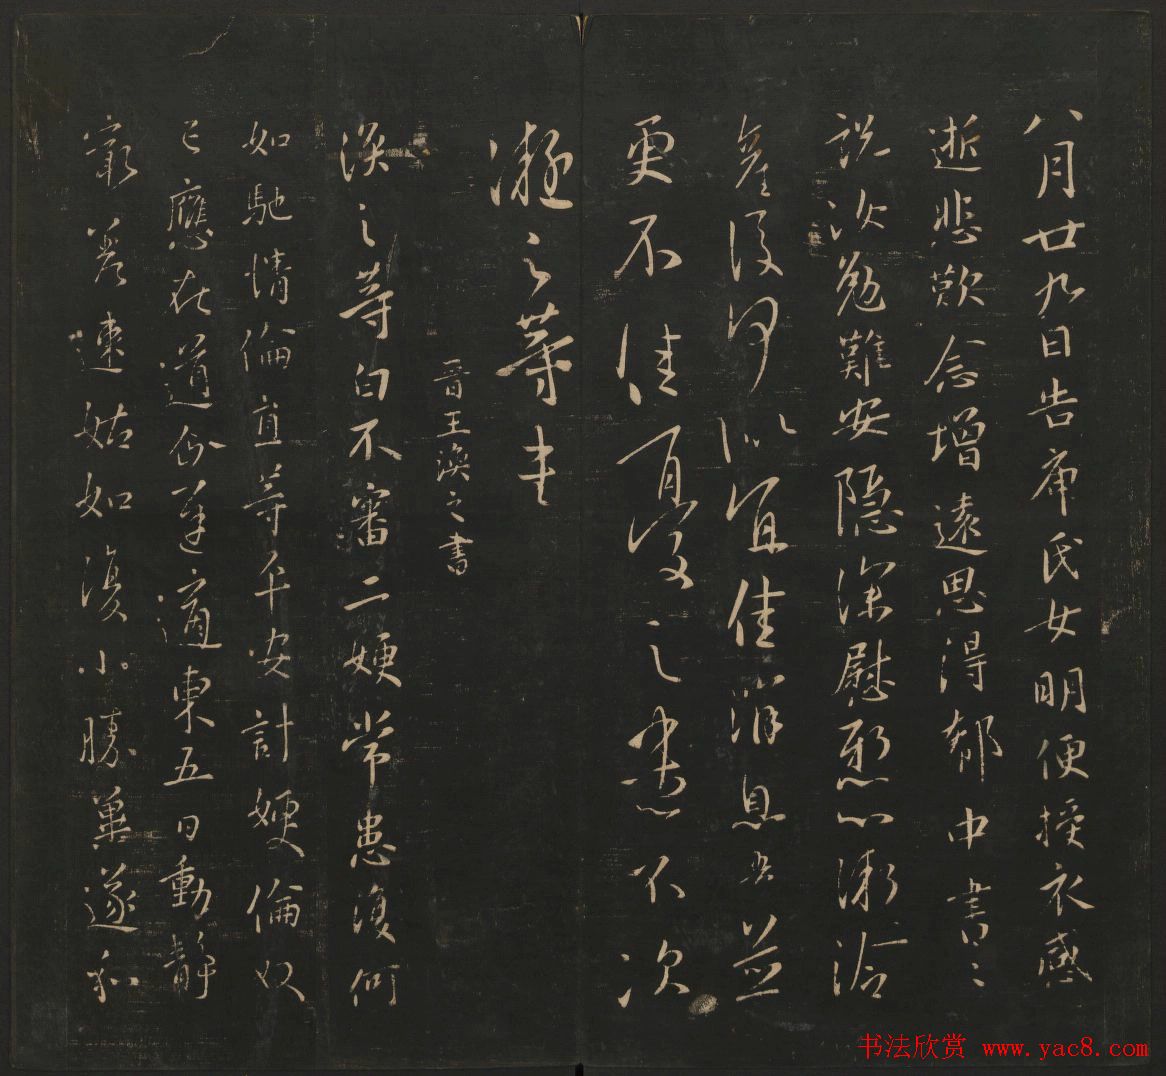 八月廿九日告庾氏女明便授衣感
逝悲歎念增遠思得郗中書〻
說汝勉難安隱深慰懸心漸冷
產後何似宜佳消息吾並
更不佳憂之遣不次
凝之等書
晉王渙之書
渙之等白不審二嫂常患復何
如馳情倫直等平安計嫂倫奴
已應在道企遲適東五日動靜
速姑如復小勝冀遂和
书法欣赏 www.yac8.com